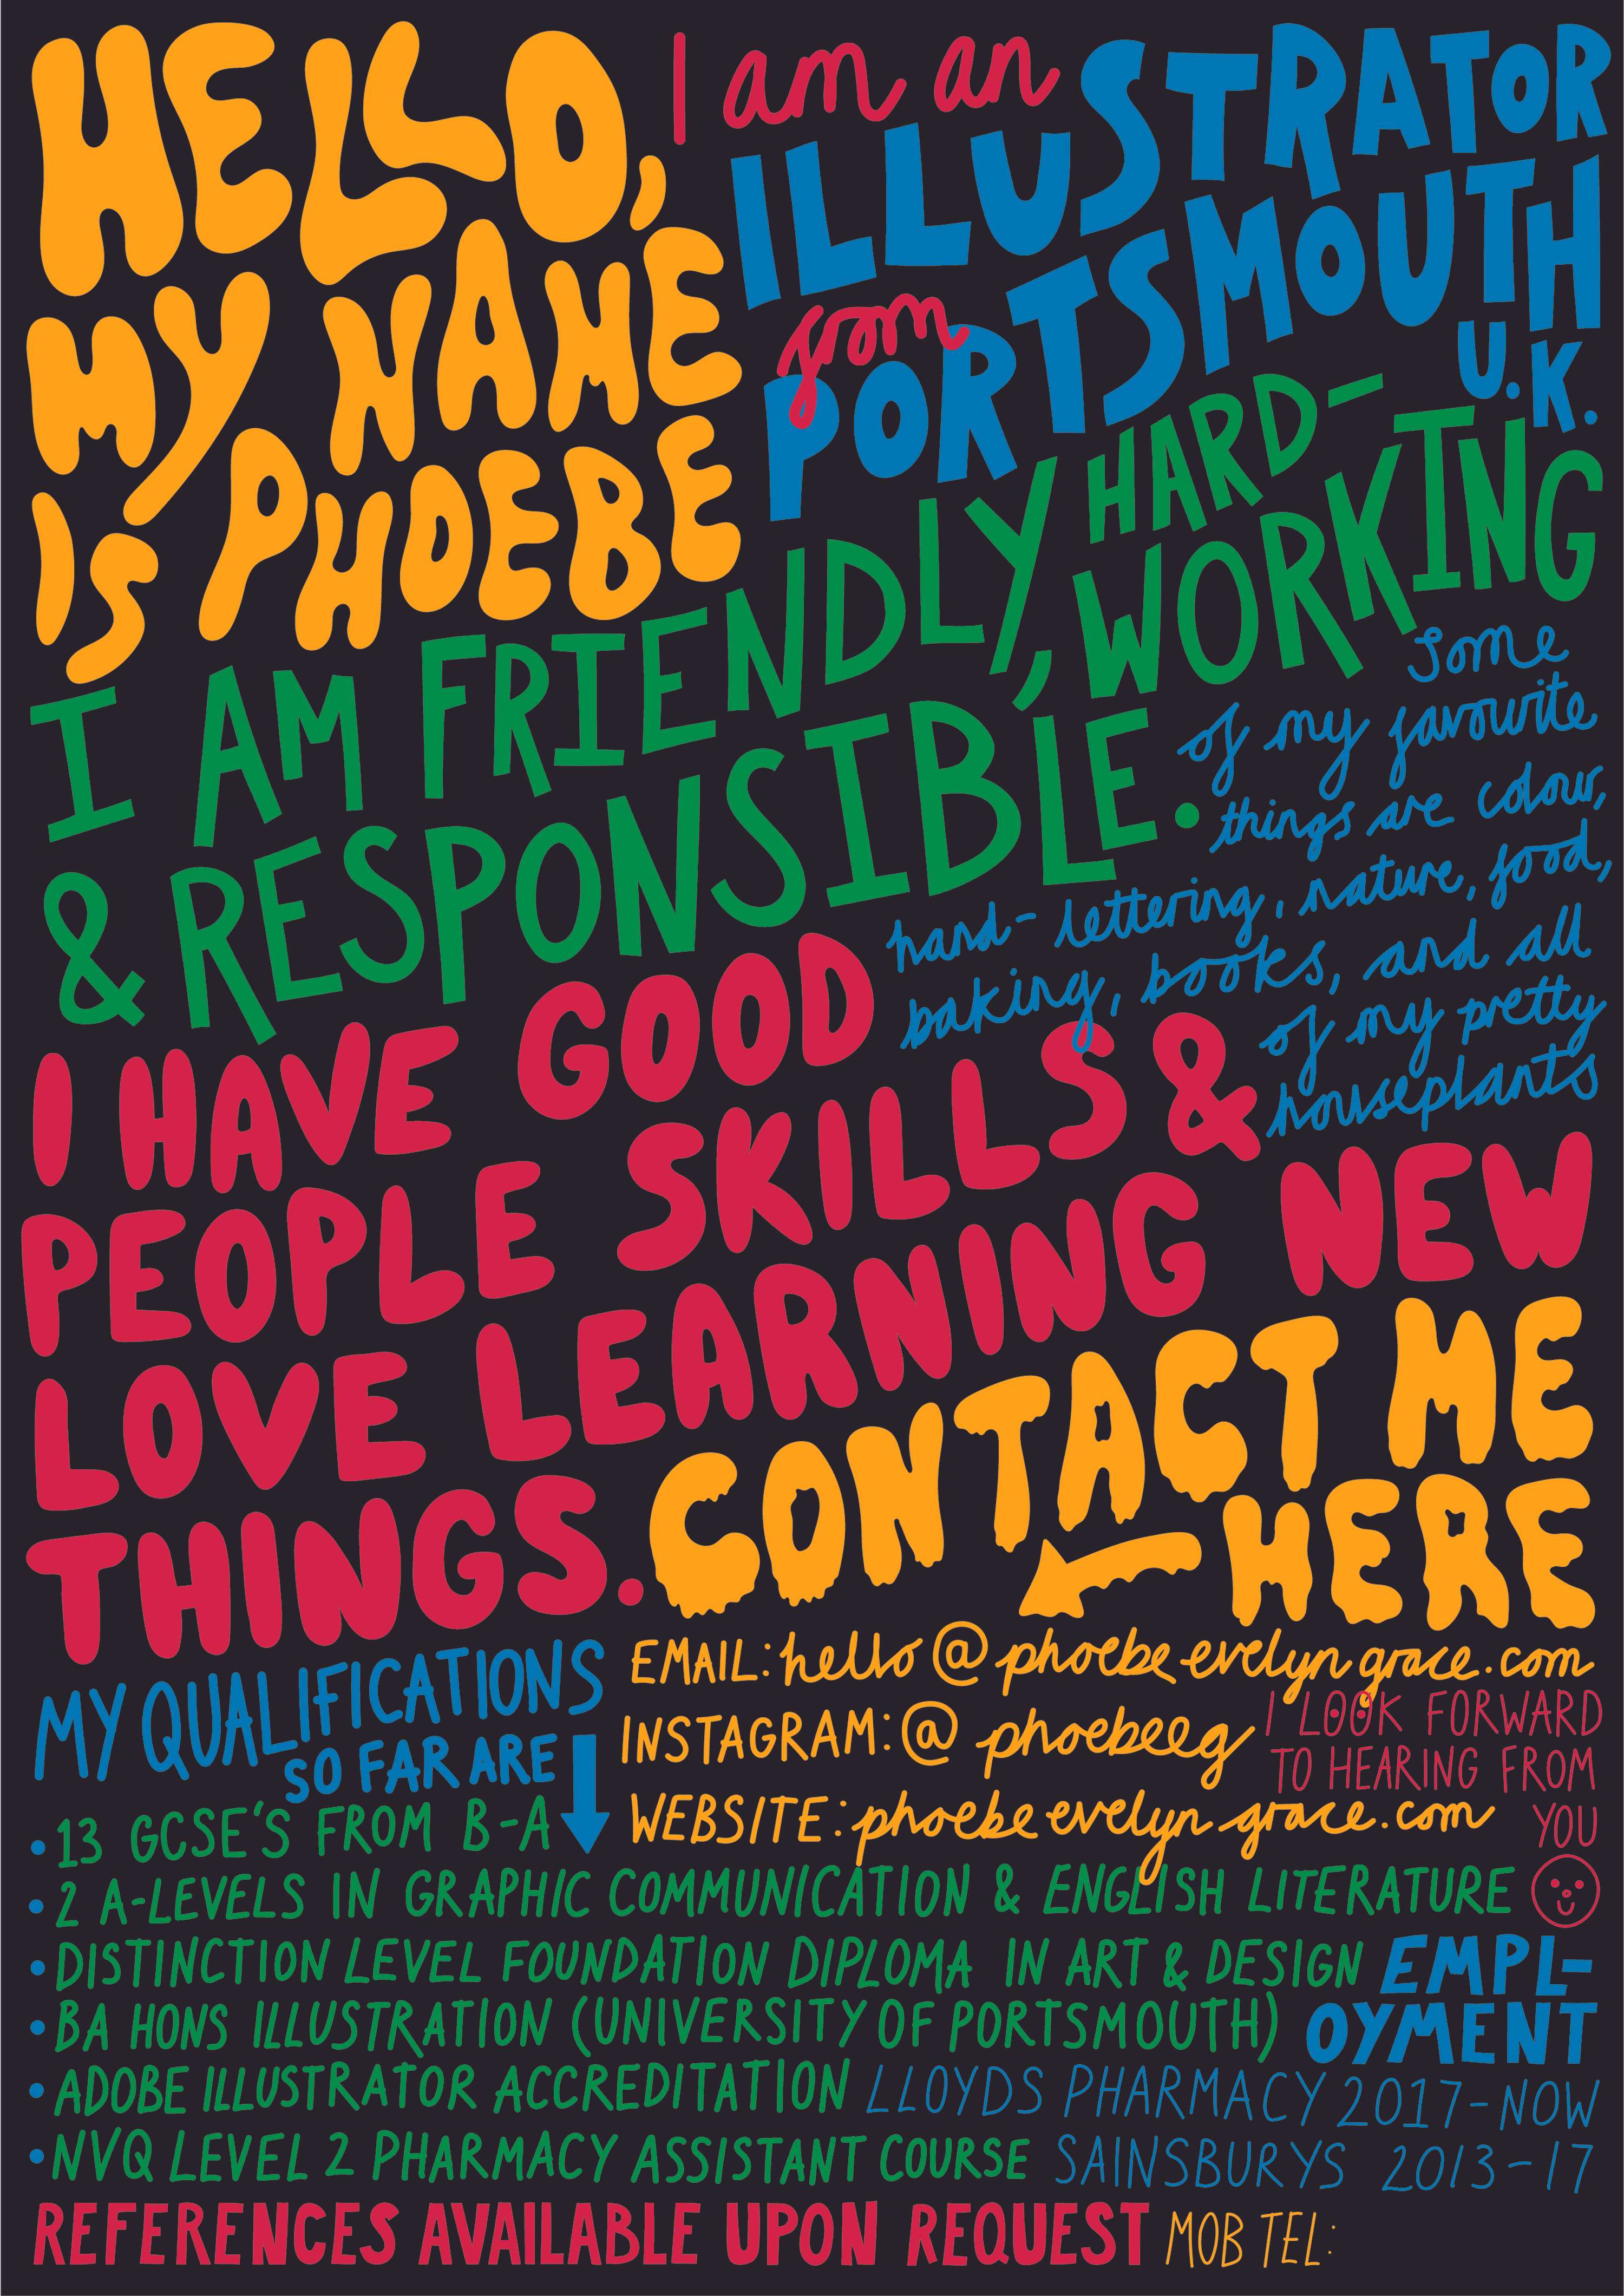 HELLO,
MY NAME
IS PHOEBE
I am an
ILLUSTRATOR
from
PORTSMOUTH
U.K.
I AM FRIENDLY, HARD-
WORKING
& RESPONSIBLE.
Some
of my favourite
things are colour,
hand-lettering, nature, food,
baking, books, and all
of my pretty
houseplants
I HAVE GOOD
PEOPLE SKILLS &
LOVE LEARNING NEW
THINGS.
CONTACT ME
HERE
EMAIL: hello@phoebe-evelyngrace.com
INSTAGRAM: @phoebeeg
WEBSITE: phoebe-evelyn-grace.com
I LOOK FORWARD
TO HEARING FROM
YOU
MY QUALIFICATIONS
SO FAR ARE
• 13 GCSE'S FROM B-A
• 2 A-LEVELS IN GRAPHIC COMMUNICATION & ENGLISH LITERATURE
• DISTINCTION LEVEL FOUNDATION DIPLOMA IN ART & DESIGN
• BA HONS ILLUSTRATION (UNIVERSITY OF PORTSMOUTH)
• ADOBE ILLUSTRATOR ACCREDITATION
• NVQ LEVEL 2 PHARMACY ASSISTANT COURSE
EMPL-
OYMENT
LLOYDS PHARMACY 2017-NOW
SAINSBURYS 2013-17
REFERENCES AVAILABLE UPON REQUEST
MOB TEL: